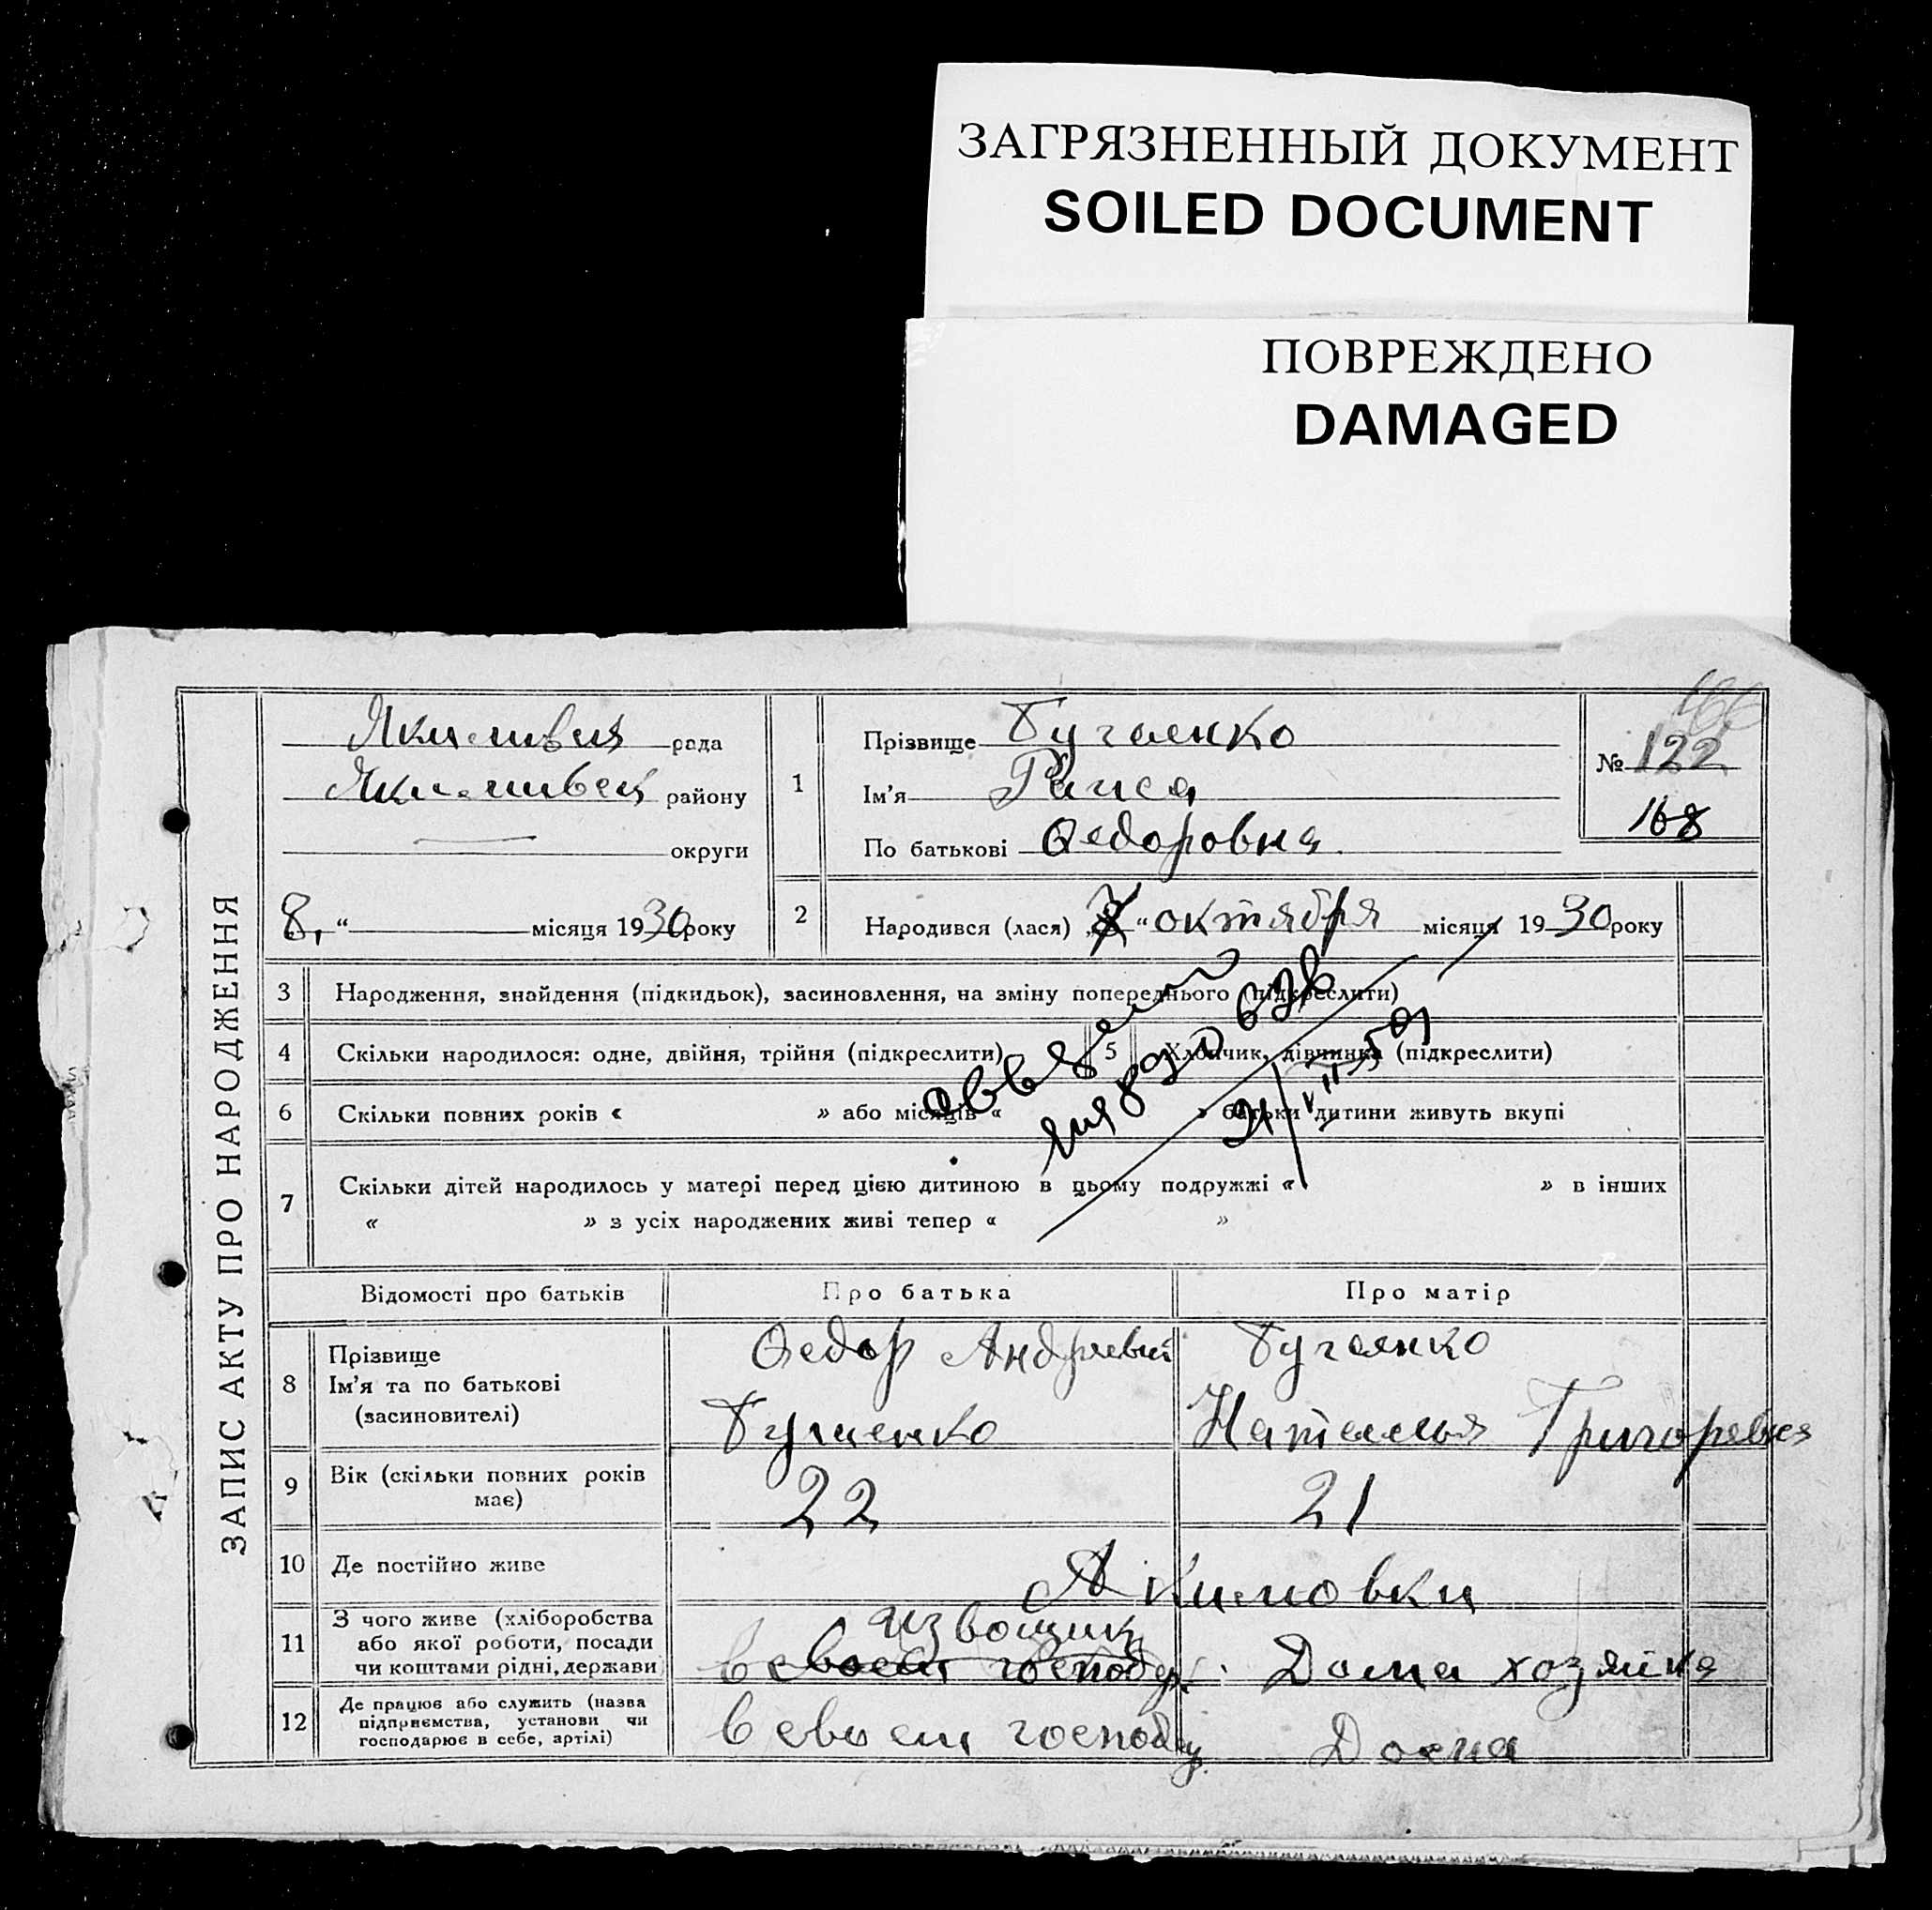 ЗАГРЯЗНЕННЫЙ ДОКУМЕНТ
SOILED DOCUMENT
ПОВРЕЖДЕНО
DAMAGED
ЗАПИС АКТУ ПРО НАРОДЖЕННЯ
рада
району
округи
8, “ місяця 1930 року
1
Прізвище
Ім'я Раиса
По батькові Федоровна
№ 122
168
2
Народився (лася) “ октября місяця 1930 року
3 Народження, знайдення (підкидьок), засиновлення, на зміну попереднього (підкреслити)
4 Скільки народилося: одне, двійня, трійня (підкреслити) 5 Хлопчик, дівчинка (підкреслити)
6 Скільки повних років « » або місяців « » батьки дитини живуть вкупі
7 Скільки дітей народилось у матері перед цією дитиною в цьому подружжі « » в інших
« » з усіх народжених живі тепер « »
Відомості про батьків Про батька Про матір
8 Прізвище
Ім'я та по батькові
(засиновителі)
Федор Андреевич
Наталья Григоревна
9 Вік (скільки повних років
має)
22 21
10 Де постійно живе
Акимовки
11 З чого живе (хліборобства
або якої роботи, посади
чи коштами рідні, держави)
извощик
в своем господ. Дома хозяйка
12 Де працює або служить (назва
підприємства, установи чи
господарює в себе, артілі)
в своем господ. Дома